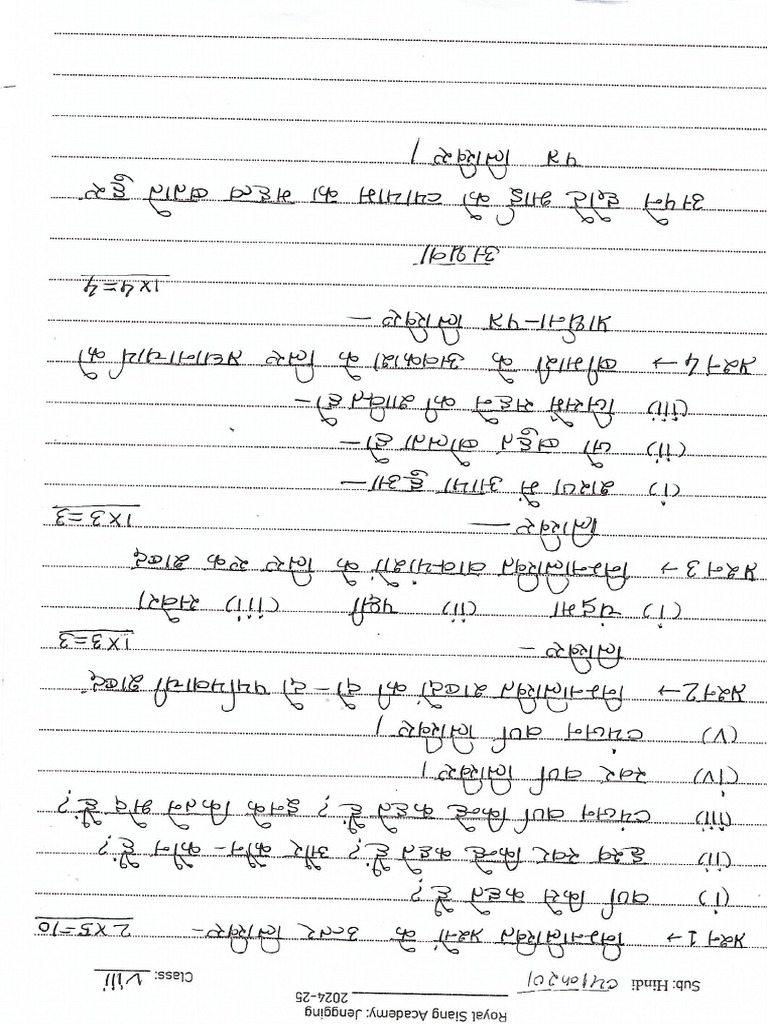 Royal Siang Academy: Jengging
2024-25
Sub: Hindi व्याकरण Class: VIII
प्रश्न 1 → निम्नलिखित प्रश्नों के उत्तर लिखिए- 2×5=10
(i) वर्ण किसे कहते है?
(ii) ह्रस्व स्वर किन्हें कहते हैं? और कौन-कौन से हैं?
(iii) व्यंजन वर्ण किन्हें कहते हैं? इनके कितने भेद हैं?
(iv) स्वर वर्ण लिखिए।
(v) व्यंजन वर्ण लिखिए।
प्रश्न 2 → निम्नलिखित शब्दों की दो-दो पर्यायवाची शब्द
लिखिए - 1×3=3
(i) चंद्रमा (ii) पक्षी (iii) सवेरा
प्रश्न 3 → निम्नलिखित वाक्यांशों के लिए एक शब्द
लिखिए — 1×3=3
(i) शरण में आया हुआ —
(ii) जो बहुत बोलता हो —
(iii) जिसमें सहने की शक्ति हो -
प्रश्न 4 → बीमारी के अवकाश के लिए प्रधानाचार्य को
प्रार्थना-पत्र लिखिए —
1×4=4
अथवा
अपने छोटे भाई को व्यायाम का महत्व बताते हुए
पत्र लिखिए।